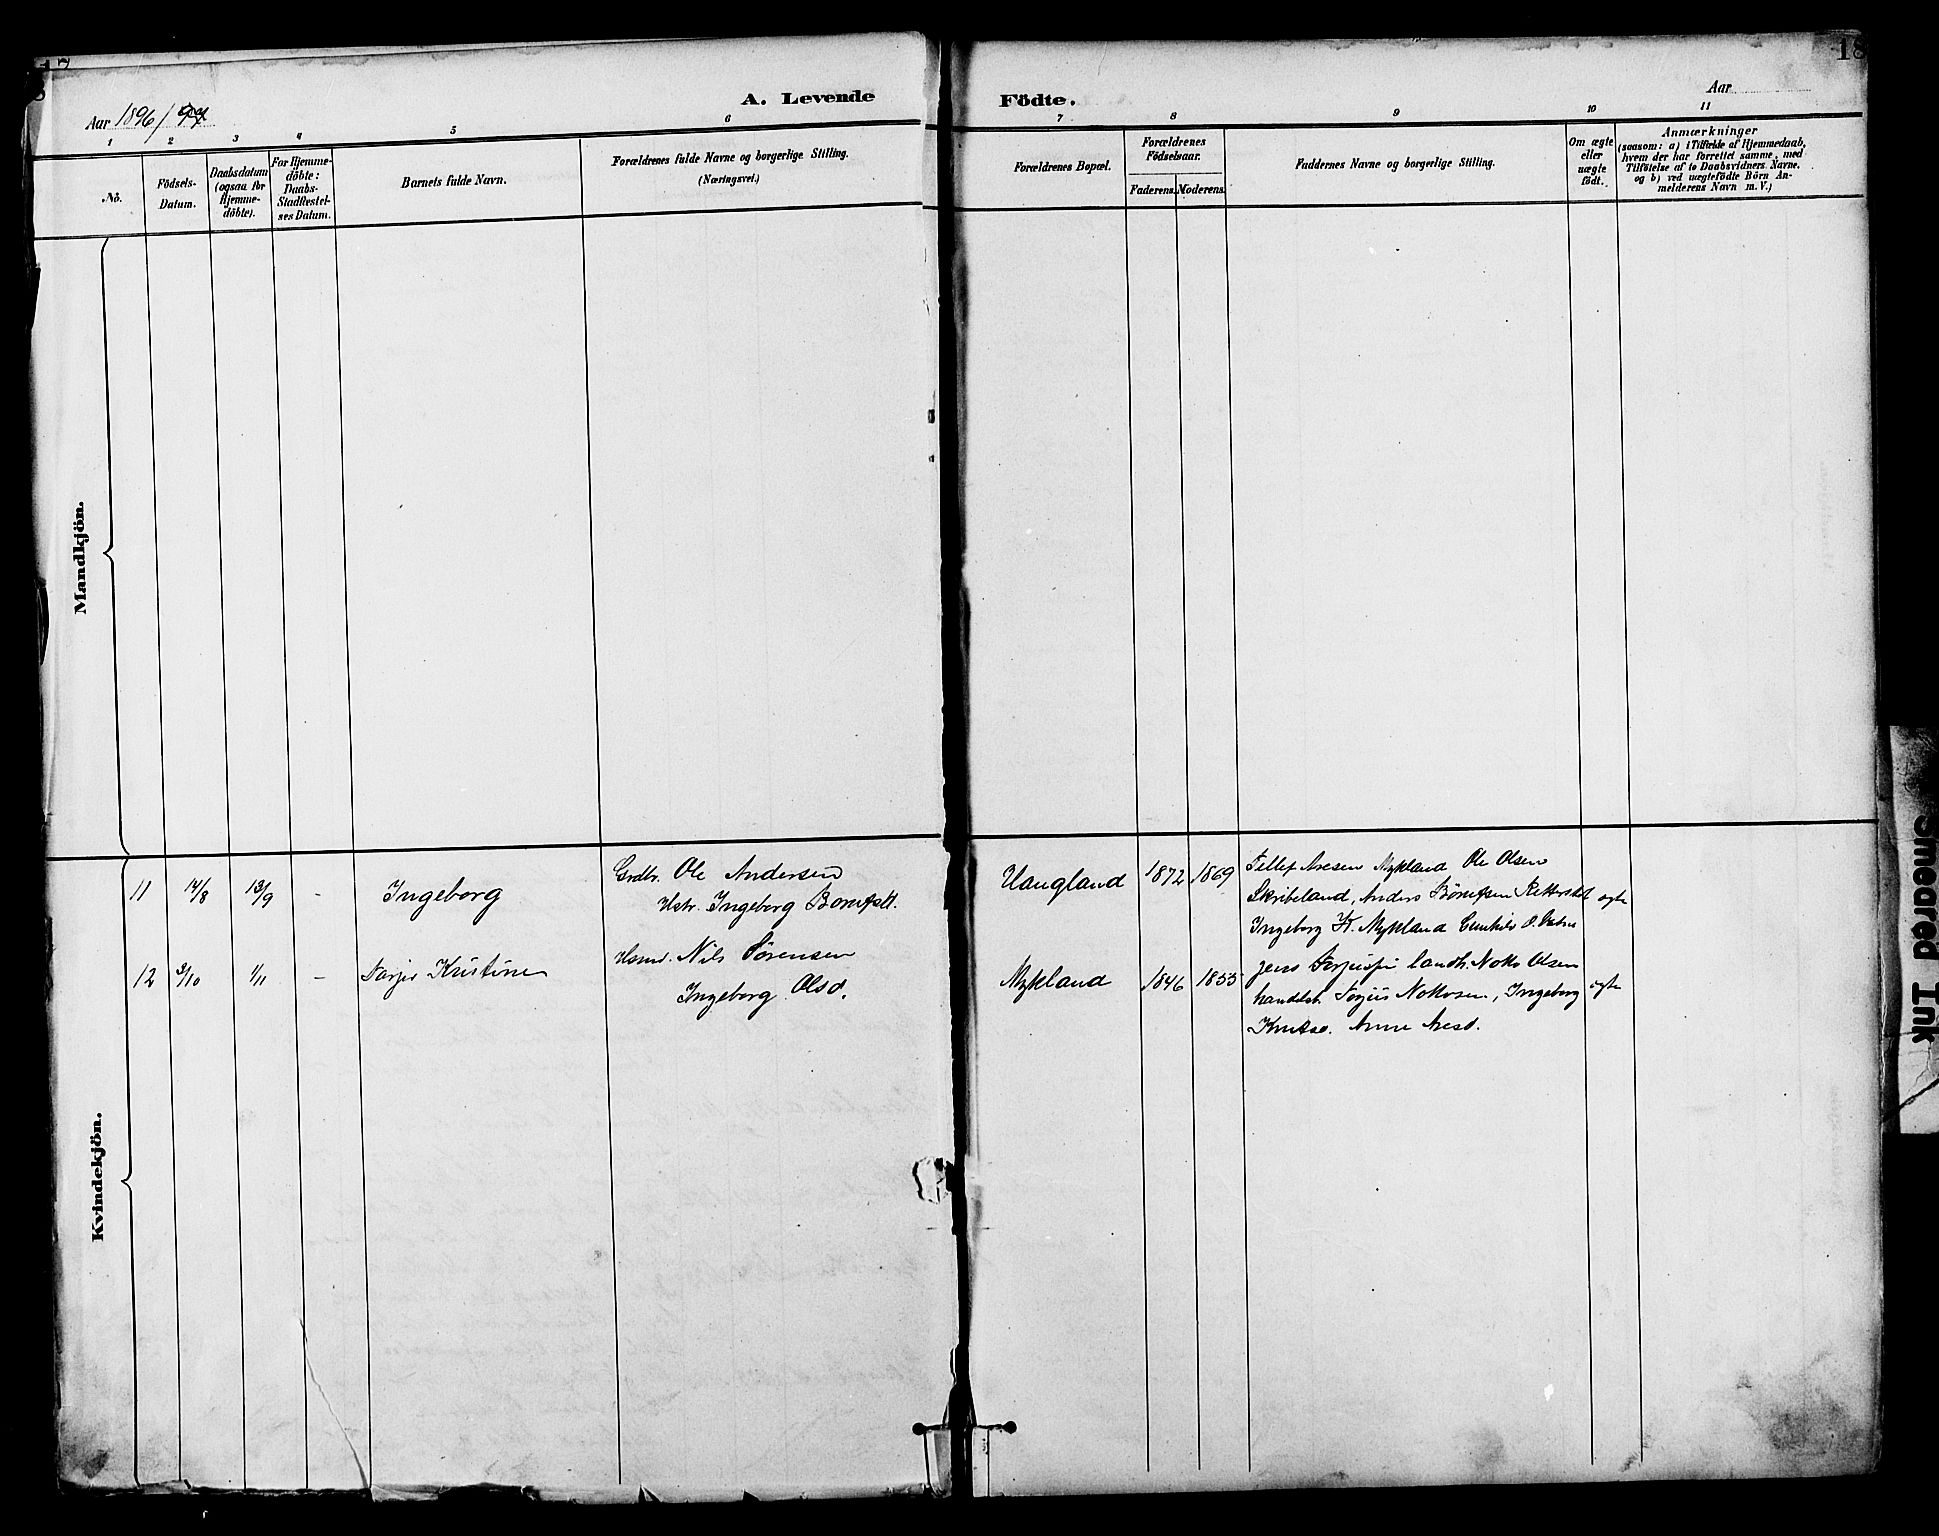 18
Aar 1896/97
A. Levende
Födte.
Aar
1 2 3 4 5 6 7 8 9 10 11
No.
Födsels-
Datum.
Daabsdatum
(ogsaa for
Hjemme-
döbte).
For Hjemme-
döbte:
Daabs-
Stadfæstel-
ses Datum.
Barnets fulde Navn.
Forældrenes fulde Navne og borgerlige Stilling.
(Næringsvei.)
Forældrenes Bopæl.
Forældrenes
Födselsaar.
Faderens. Moderens.
Faddernes Navne og borgerlige Stilling.
Om ægte
eller
uægte
födt.
Anmærkninger
(saasom: a) i Tilfælde af Hjemmedaab,
hvem der har forrettet samme, med
Tilföielse af to Daabsvidners Navne.
og b) ved uægtefödte Börn An-
melderens Navn m.V.)
Mandkjön.
Kvindekjön.
11 14/8 13/9 - Ingeborg
Grdbr. Ole Andersen
Hstr. Ingeborg
Haugland 1872 1869
Tellef Aresen Mykland Ole Olsen
Skribeland, Anders
Ingeborg K. Mykland
ægte
12 3/10 1/11 - Tarjer Kristine
Husmd. Nils Sörensen
Ingeborg Olsd.
Mykland 1846 1855
Jens Olsen
handelsb. Ingeborg
Knutsd. Anne Aresd.
ægte
Smeared Ink